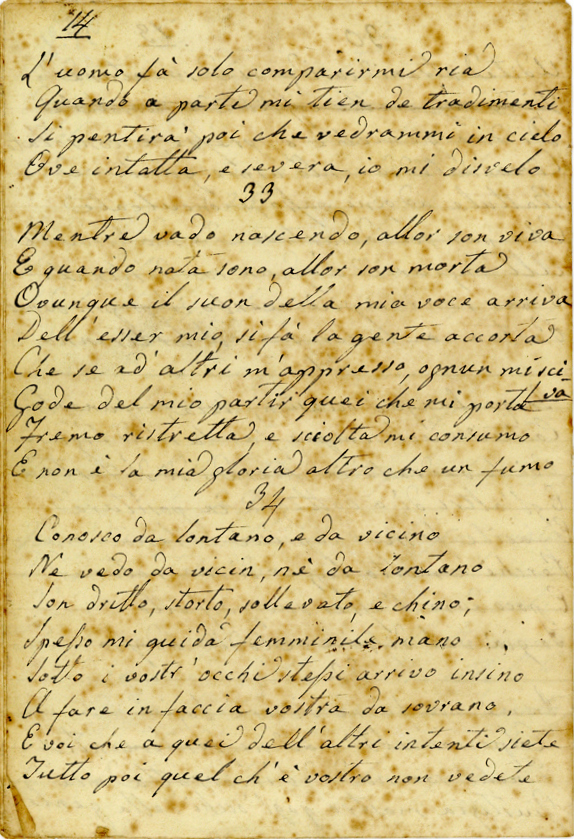 14
L'uomo fà solo comparirmi ria
Quando a parte mi tien de tradimenti
Si pentirà poi che vedrammi in cielo
Ove intatta, e severa, io mi disvelo
33
Mentre vado nascendo, allor son viva
E quando nata sono, allor son morta
Ovunque il suon della mia voce arriva
Dell' esser mio, si fà la gente accorta
Che se ad' altri m'appresso, ognun mi sci-
Gode del mio partir quei che mi porta
va
Fremo ristretta, e sciolta mi consumo
E non è la mia gloria altro che un fumo
34
Conosco da lontano, e da vicino
Ne vedo da vicin, nè da lontano
Son dritto, storto, sollevato, e chino;
Spesso mi guida femminile mano
Sotto i vostr' occhi stessi arrivo insino
A fare in faccia vostra da sovrano,
E voi che a quei dell' altri intenti siete
Tutto poi quel ch' è vostro non vedete